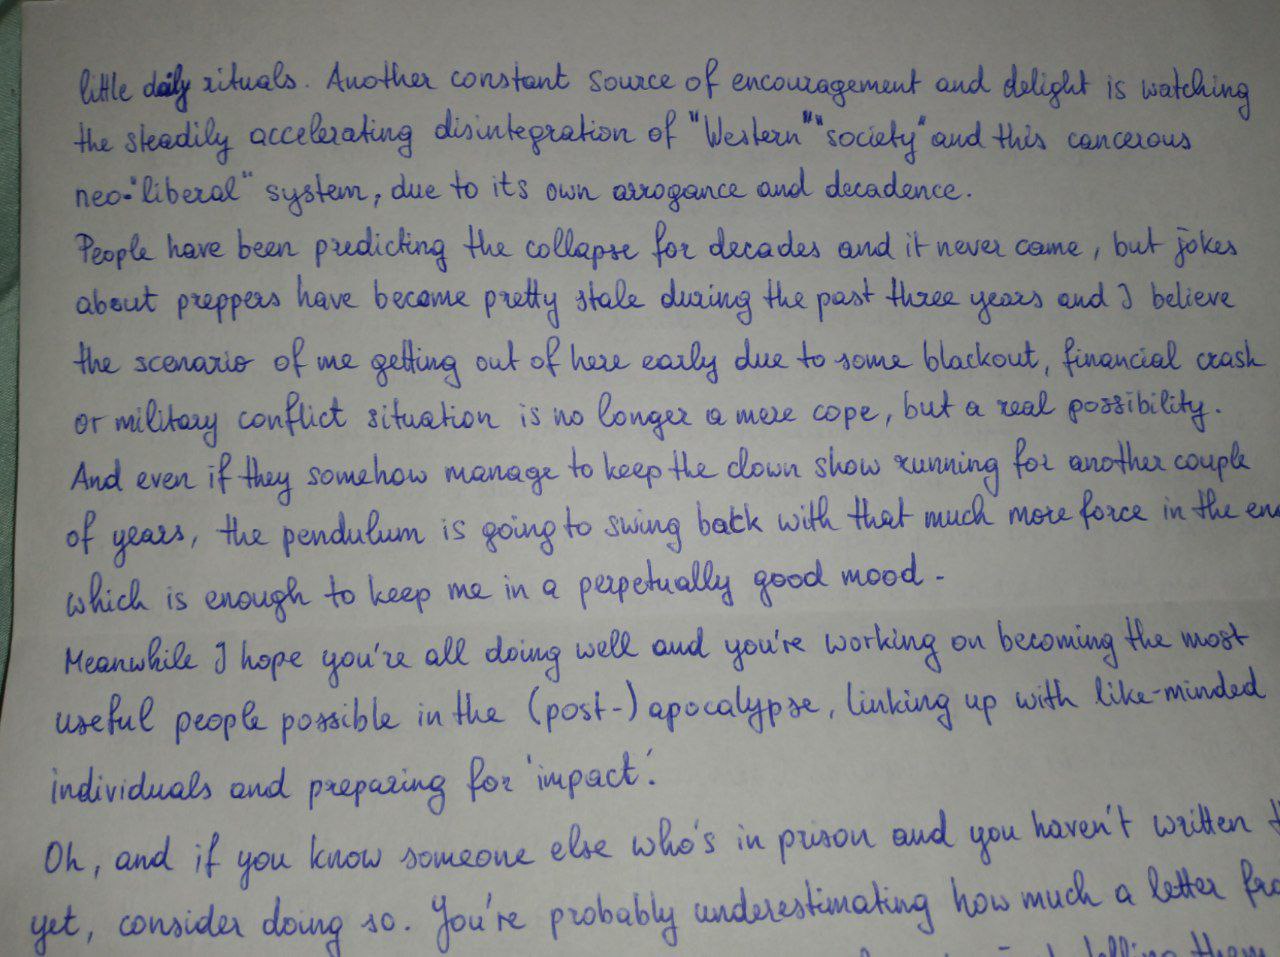 little daily rituals. Another constant source of encouragement and delight is watching
the steadily accelerating disintegration of "Western" "society" and this cancerous
neo-"liberal" system, due to its own arrogance and decadence.
People have been predicting the collapse for decades and it never came, but jokes
about preppers have become pretty stale during the past three years and I believe
the scenario of me getting out of here early due to some blackout, financial crash
or military conflict situation is no longer a mere cope, but a real possibility.
And even if they somehow manage to keep the clown show running for another couple
of years, the pendulum is going to swing back with that much more force in the
which is enough to keep me in a perpetually good mood -
Meanwhile I hope you're all doing well and you're working on becoming the most
useful people possible in the (post-) apocalypse, linking up with like-minded
individuals and preparing for 'impact'.
Oh, and if you know someone else who's in prison and you haven't written
yet, consider doing so. You're probably underestimating how much a letter